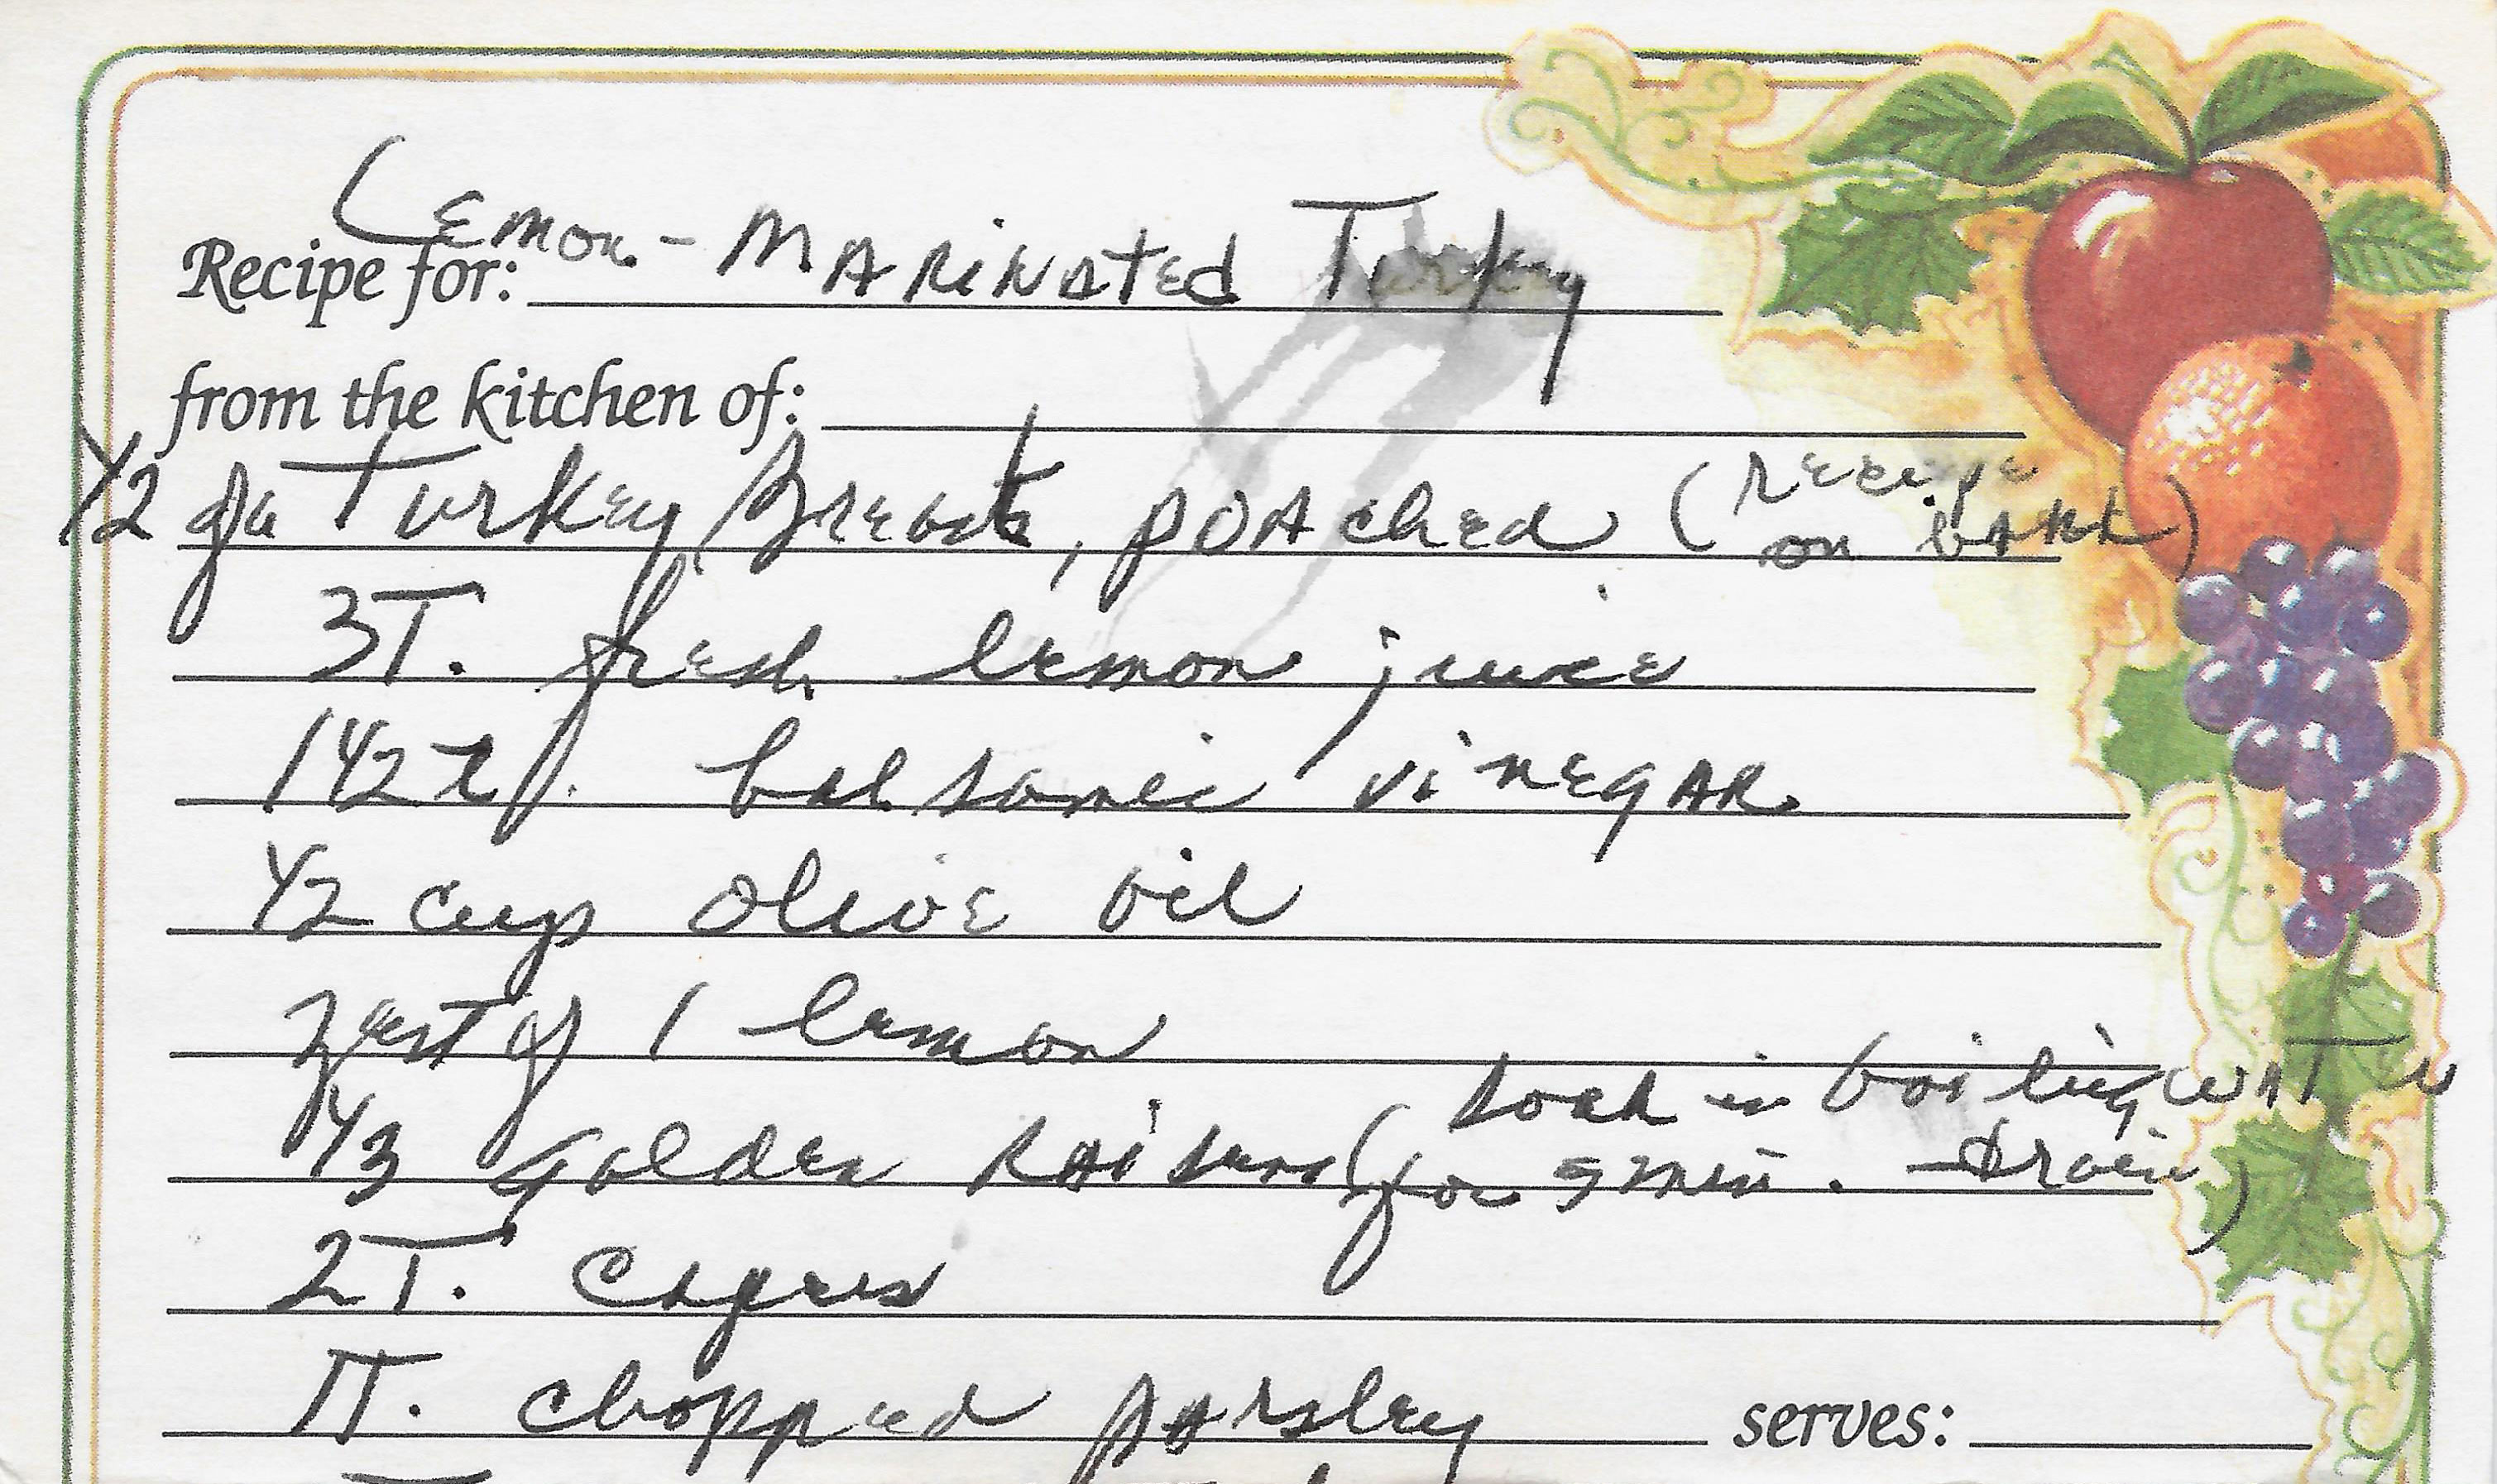 Recipe for: Lemon-Marinated Turkey
from the kitchen of:
1/2 of a Turkey Breast, poached (recipe on back)
3T. fresh lemon juice
1 1/2 t. balsamic vinegar
1/2 cup olive oil
zest of 1 lemon
1/3 golden raisins (soak in boiling water for 5 min. - drain)
2T. capers
1T. chopped parsley
serves: